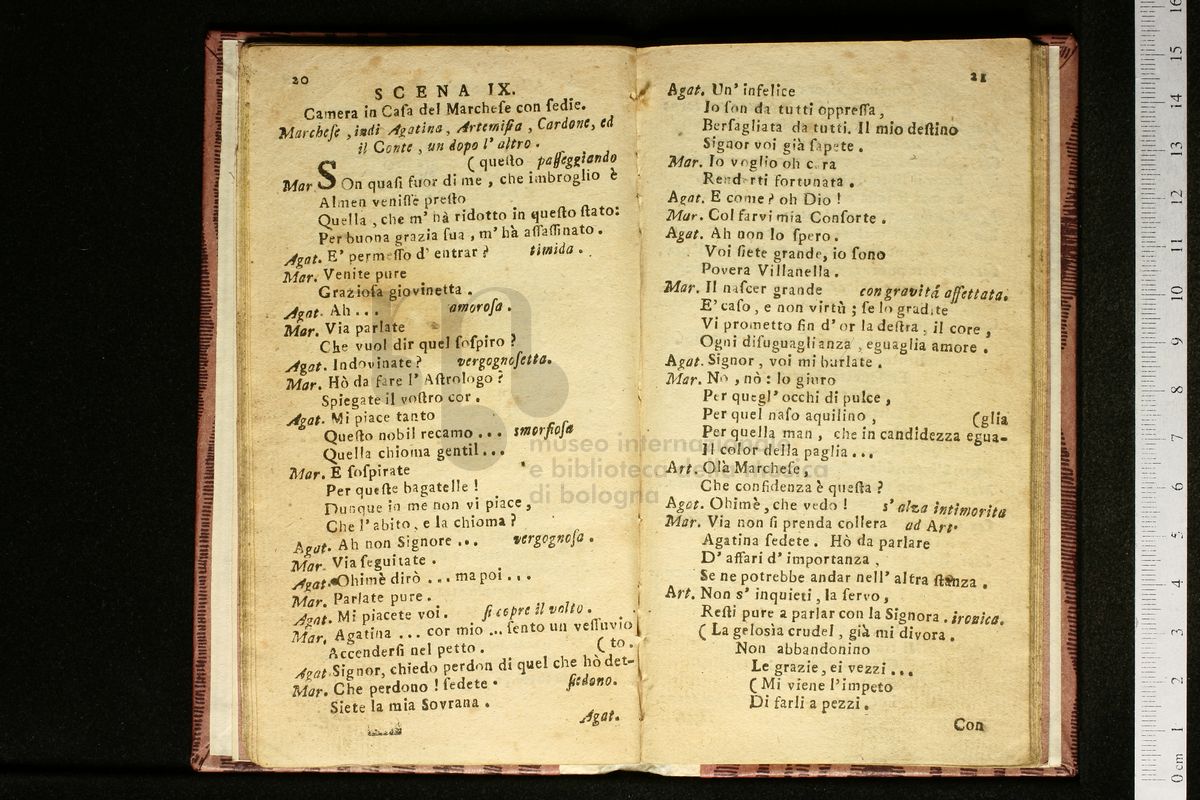 20
SCENA IX.
Camera in Casa del Marchese con sedie.
Marchese, indi Agatina, Artemisia, Cardone, ed
il Conte, un dopo l' altro.
(questo passeggiando
Mar SOn quasi fuor di me, che imbroglio è
Almen venisse presto
Quella, che m' hà ridotto in questo stato:
Per buona grazia sua, m' hà assassinato.
Agat. E' permesso d' entrar? timida.
Mar. Venite pure
Graziosa giovinetta.
Agat. Ah... amorosa.
Mar. Via parlate
Che vuol dir quel sospiro?
Agat. Indovinate? vergognosetta.
Mar. Hò da fare l' Astrologo?
Spiegate il vostro cor.
Agat. Mi piace tanto
Questo nobil recamo... smorfiosa
Quella chioma gentil...
Mar. E sospirate
Per queste bagatelle!
Dunque in me non vi piace,
Che l' abito, e la chioma?
Agat. Ah non Signore... vergognosa.
Mar. Via seguitate.
Agat. Ohimè dirò... ma poi...
Mar. Parlate pure.
Agat. Mi piacete voi. si copre il volto.
Mar. Agatina... cor mio... sento un vessuvio
Accendersi nel petto. (to.
Agat. Signor, chiedo perdon di quel che hò det-
Mar. Che perdono! sedete. siedono.
Siete la mia Sovrana.
Agat.
21
Agat. Un' infelice
Io son da tutti oppressa,
Bersagliata da tutti. Il mio destino
Signor voi già sapete.
Mar. Io voglio oh cara
Renderti fortunata.
Agat. E come? oh Dio!
Mar. Col farvi mia Consorte.
Agat. Ah non lo spero.
Voi siete grande, io sono
Povera Villanella.
Mar. Il nascer grande con gravità affettata.
E' caso, e non virtù; se lo gradite
Vi prometto fin d' or la destra, il core,
Ogni disuguaglianza, eguaglia amore.
Agat. Signor, voi mi burlate.
Mar. No, nò: Io giuro
Per quegl' occhi di pulce,
Per quel naso aquilino, (glia
Per quella man, che in candidezza egua-
Il color della paglia...
Art. Olà Marchese,
Che confidenza è questa?
Agat. Ohimè, che vedo! s' alza intimorita
Mar. Via non si prenda collera ad Art.
Agatina sedete. Hò da parlare
D' affari d' importanza,
Se ne potrebbe andar nell' altra stanza.
Art. Non s' inquieti, la servo,
Resti pure a parlar con la Signora. ironica.
(La gelosìa crudel, già mi divora.
Non abbandonino
Le grazie, ei vezzi...
(Mi viene l' impeto
Di farli a pezzi.
Con
museo internazionale
e biblioteca della musica
di bologna
0 cm 1 2 3 4 5 6 7 8 9 10 11 12 13 14 15 16